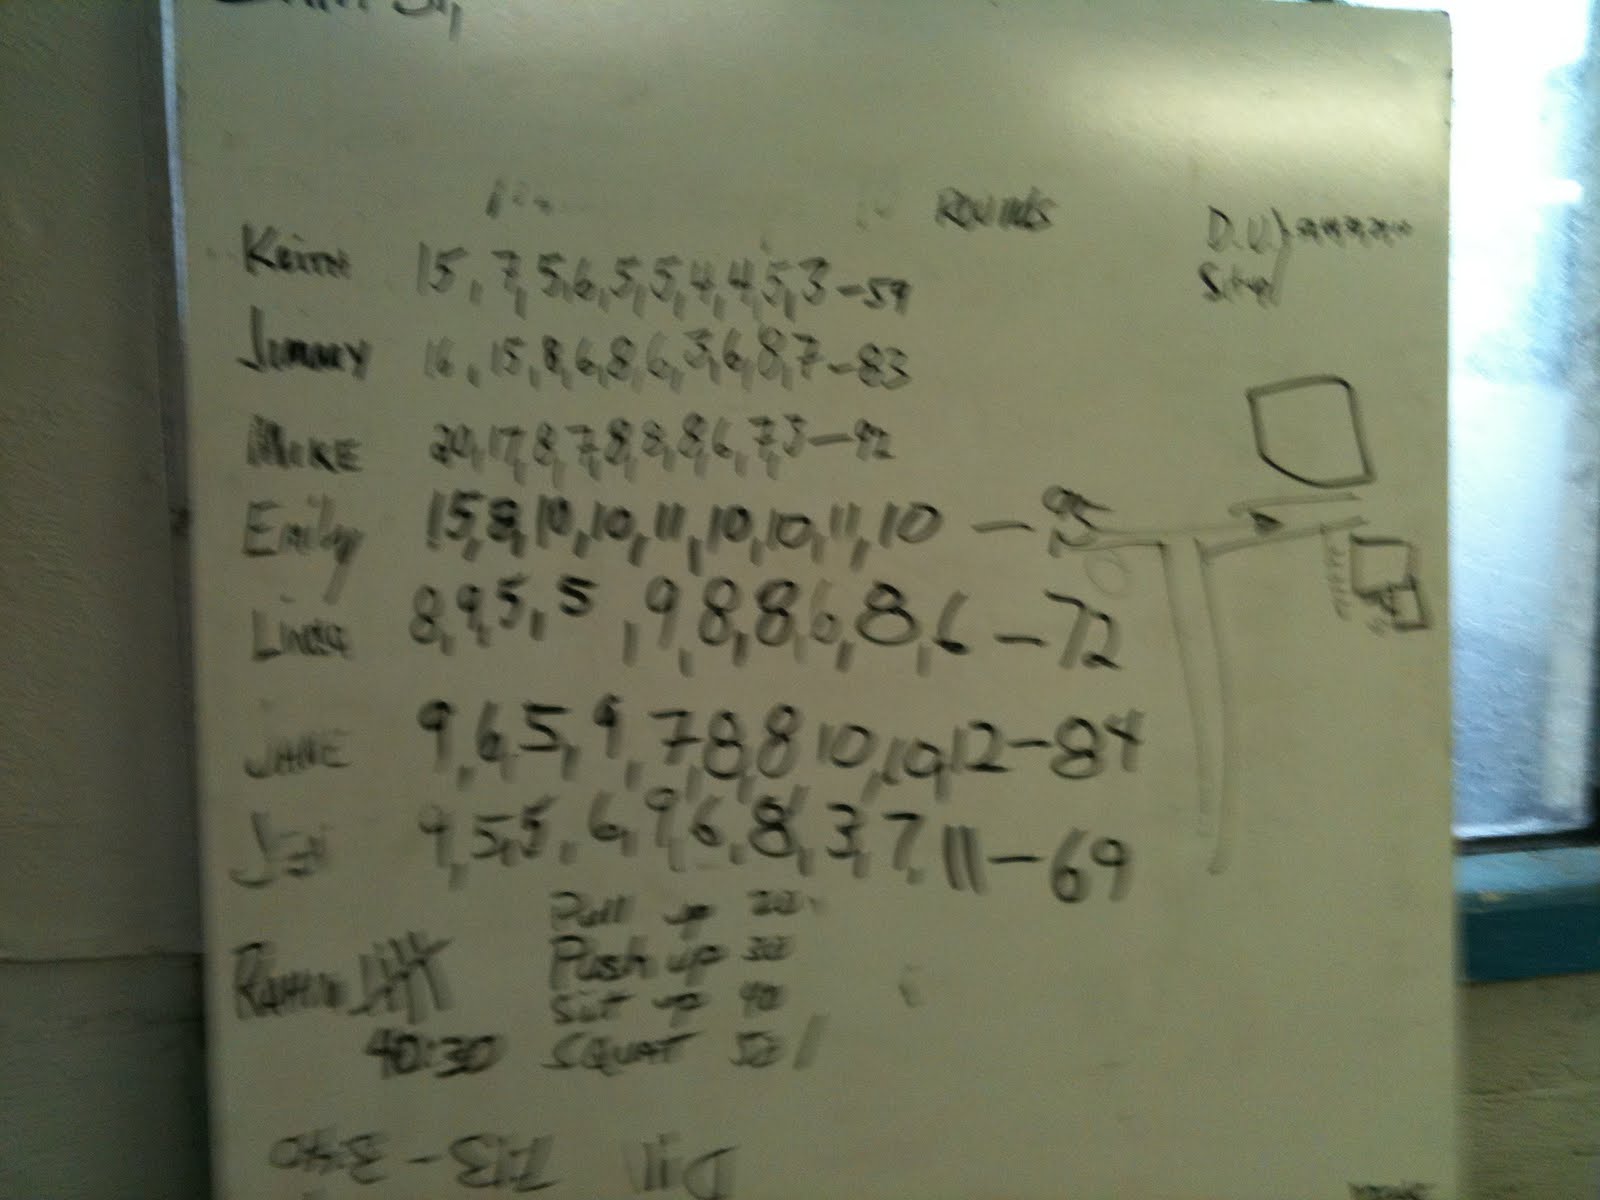 ROUNDS
D.U.
Keith 15, 7, 5, 6, 5, 5, 4, 4, 5, 3 - 59
Jimmy 16, 15, 8, 6, 8, 6, 3, 6, 8, 7 - 83
MIKE 20, 17, 8, 7, 8, 8, 8, 6, 7, 3 - 92
Emily 15, 8, 10, 10, 11, 10, 10, 11, 10 - 95
Linda 8, 9, 5, 5, 9, 8, 8, 6, 8, 6 - 72
JANE 9, 6, 5, 9, 7, 8, 8 10, 10, 12 - 84
9, 5, 5, 6, 9, 6, 8, 3, 7, 11 - 69
Pull up 20
Push up 30
Sit up 40
40:30 SQUAT 50